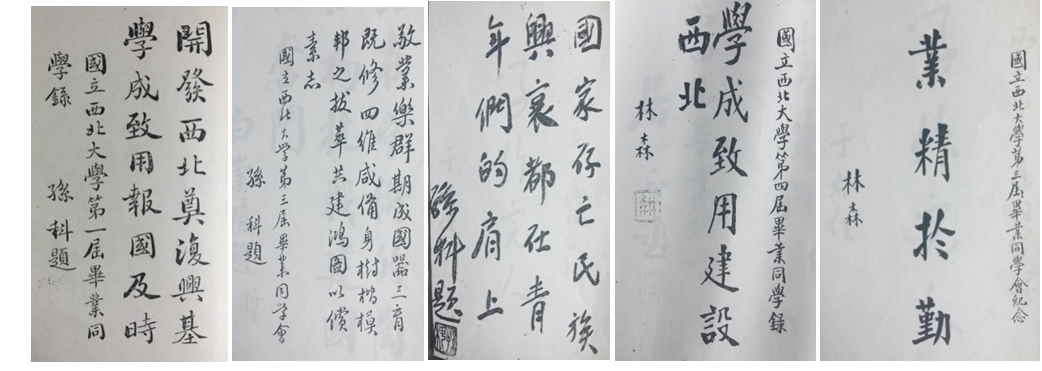 開發西北奠復興基
學成致用報國及時
國立西北大學第一屆畢業同
學錄
孫科題
敬業樂群期成國器三育
既修四維咸備身樹楷模
邦之拔萃共建鴻圖以償
素志
國立西北大学第三屆畢業同学會
孫科題
國家存亡民族
興衰都在青
年們的肩上
孫科題
國立西北大學第四屆畢業同學錄
學成致用建設
西北
林森
國立西北大學第三屆畢業同學會紀念
業精於勤
林森